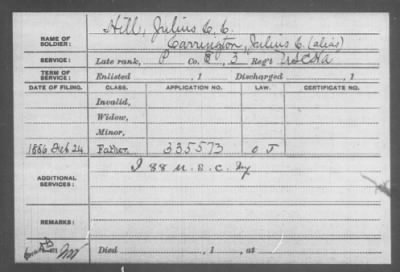 NAME OF SOLDIER: Hill, Julius C. C.
Carrington, Julius C. (alias)
SERVICE: Late rank, P Co. E, 3 Reg't U S C H A
TERM OF SERVICE: Enlisted , 1 Discharged , 1
DATE OF FILING. CLASS. APPLICATION NO. LAW. CERTIFICATE NO.
Invalid,
Widow,
Minor,
1886 Feb 24 Father. 335573 O J
ADDITIONAL SERVICES: I 88 U. S. C. Inf
REMARKS:
Died , 1 , at